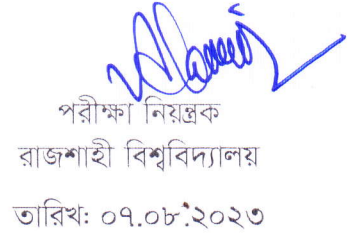 পরীক্ষা নিয়ন্ত্রক
রাজশাহী বিশ্ববিদ্যালয়
তারিখ: ০৭.০৮.২০২৩